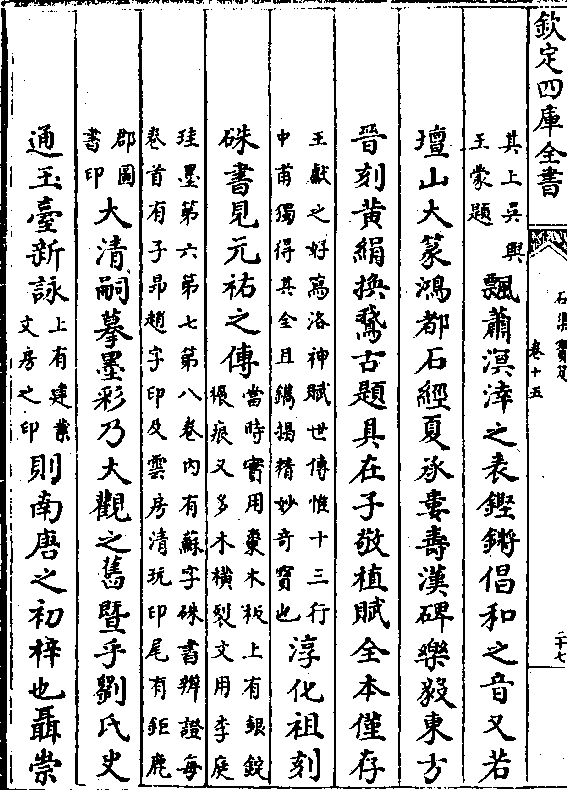 欽定四庫全書
石渠寶笈
卷十五
二十七
其上吳興
王蒙題
飄蕭溟涬之表鏗鏘倡和之音又若
壇山大篆鴻都石經夏承婁壽漢碑樂毅東方
晉刻黃絹換鵞古題具在子敬植賦全本僅存
王獻之好寫洛神賦世傳惟十三行
中甫獨得其全且鐫搨精妙奇寶也
淳化祖刻
硃書見元祐之傳
當時實用棗木板上有銀錠
痕又多木橫裂文用李庭
珪墨第六第七第八卷內有蘇字硃書辨證每
卷首有子昂趙字印及雲房清玩印尾有鉅鹿
郡圖
書印
大清嗣摹墨彩乃大觀之舊暨乎劉氏史
通玉臺新詠
上有建業
文房之印
則南唐之初梓也聶崇